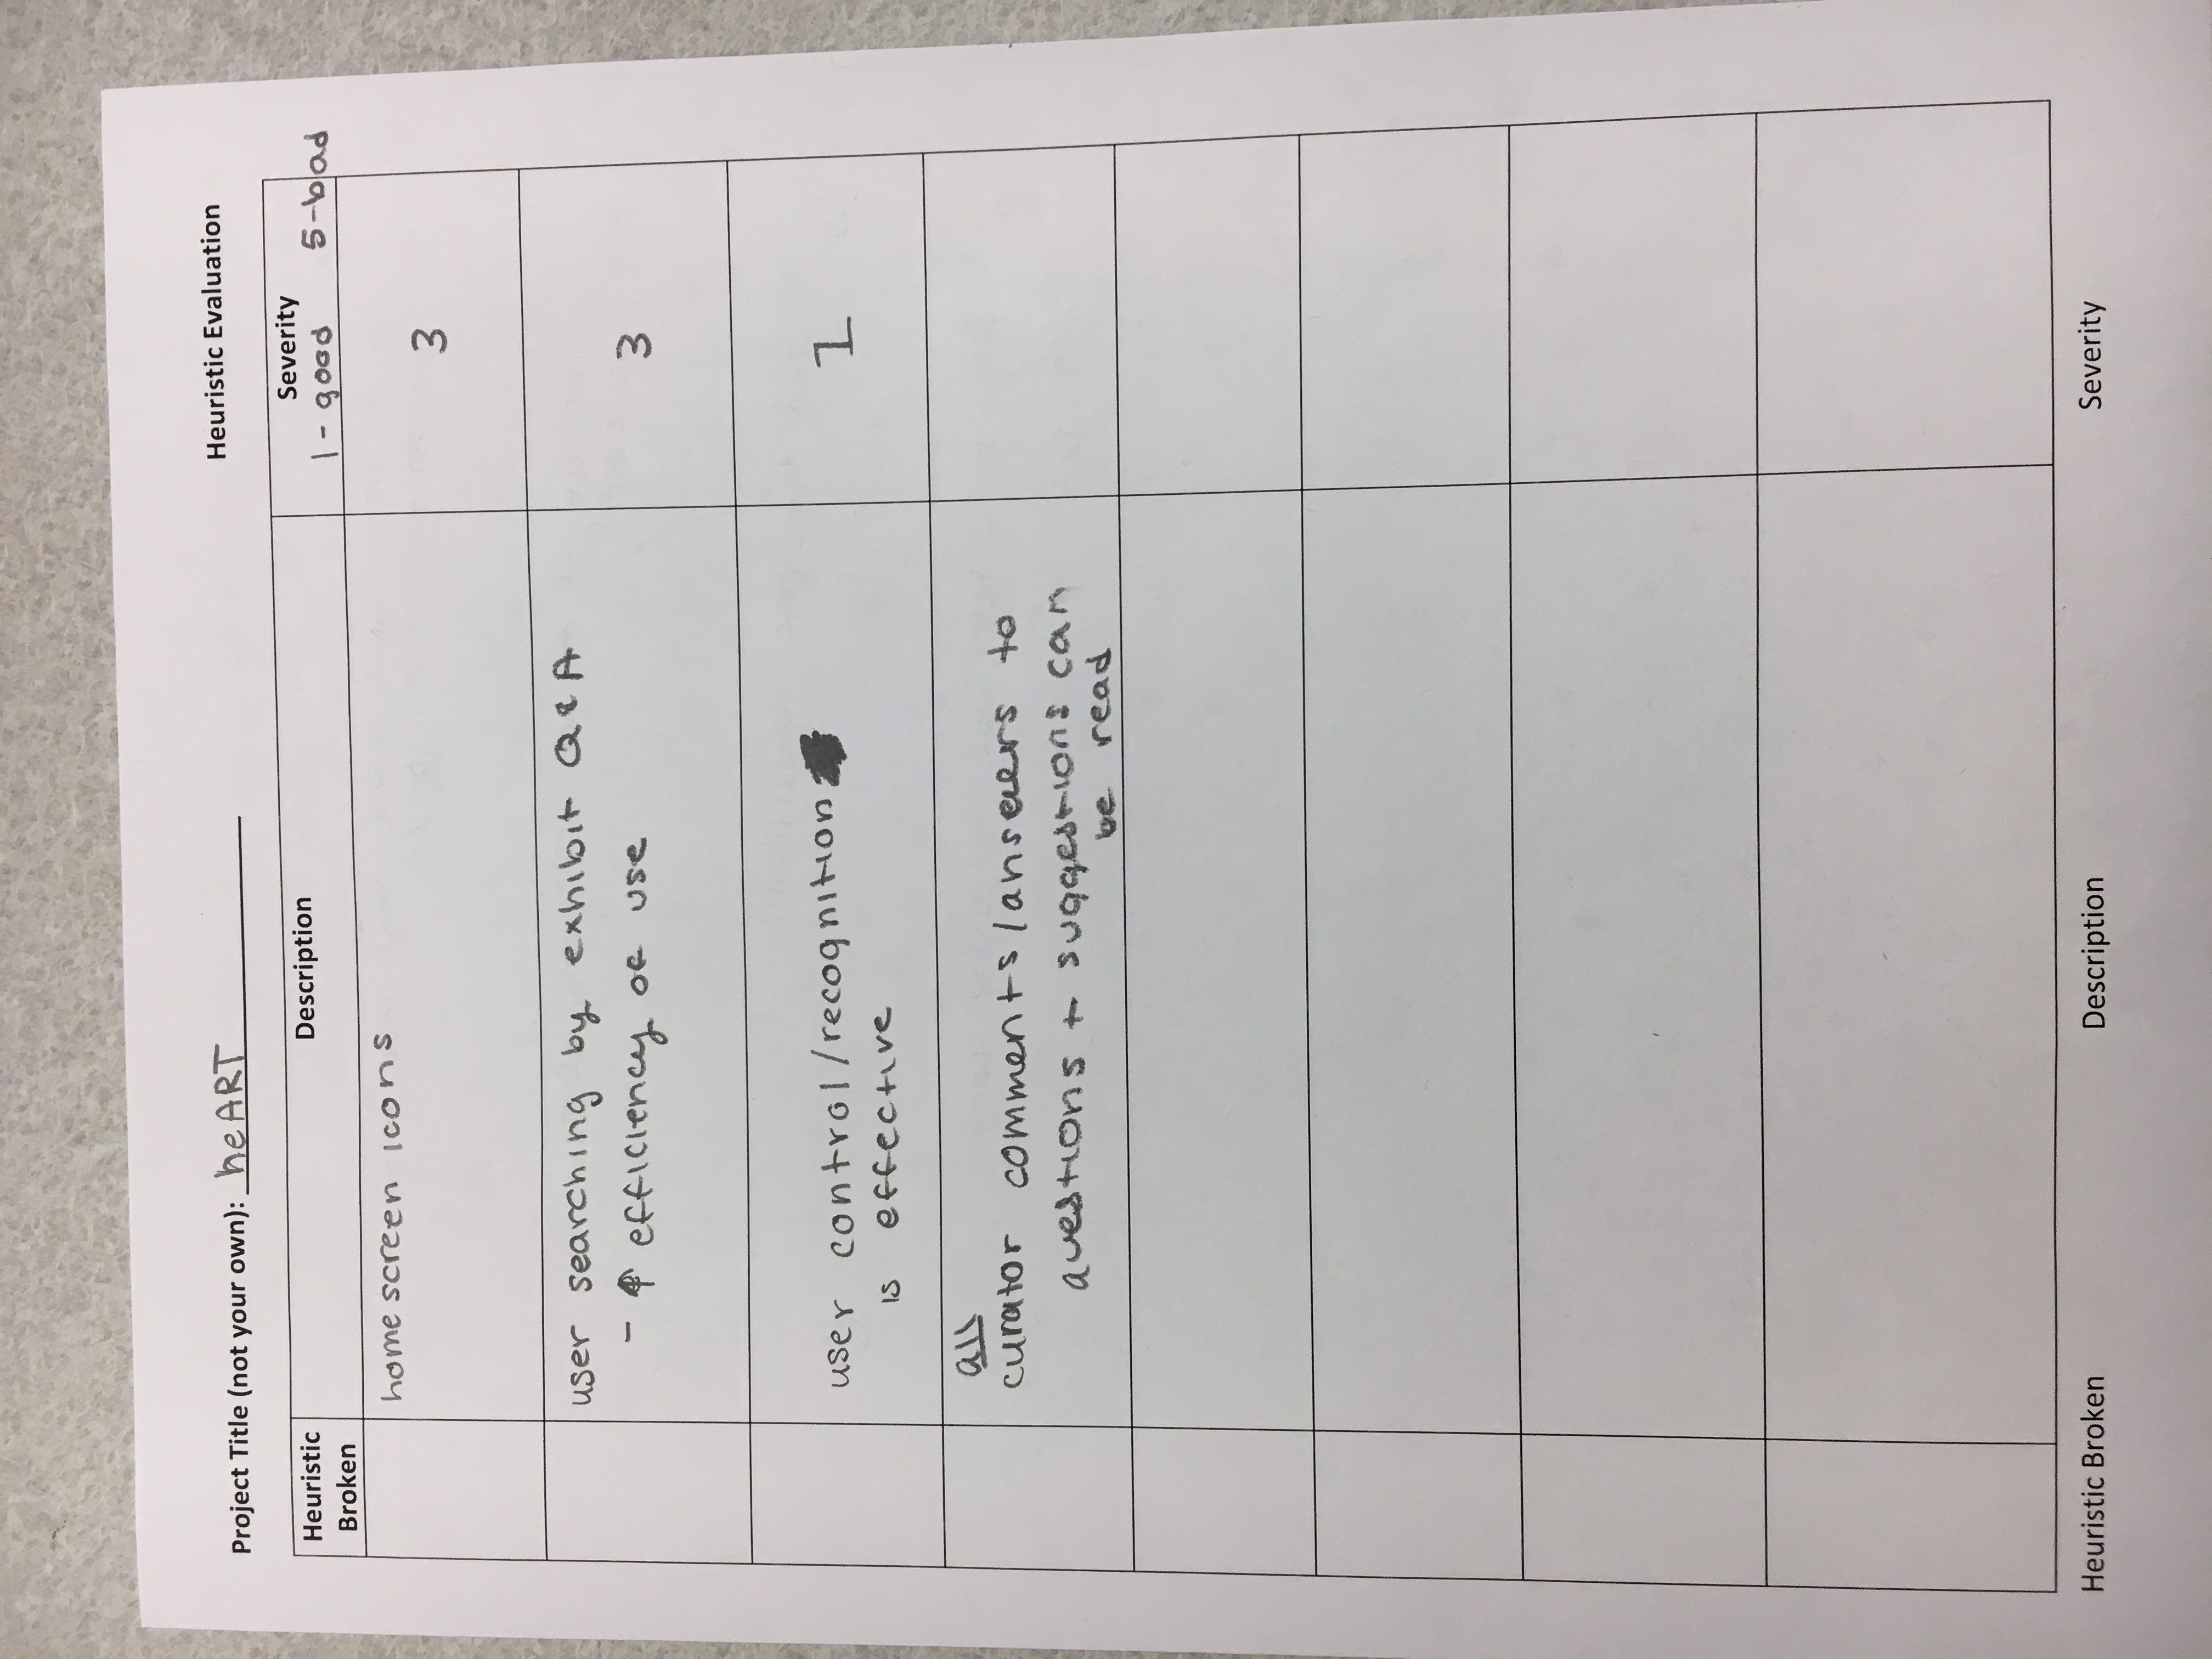 Project Title (not your own): heART
Heuristic Evaluation
Heuristic Broken
Description
Severity
1 - good 5-bad
home screen icons
3
user searching by exhibit Q & A
- ↑ efficiency of use
3
user control/recognition
is effective
1
all
curator comments/answers to
questions + suggestions can
be read
Heuristic Broken
Description
Severity